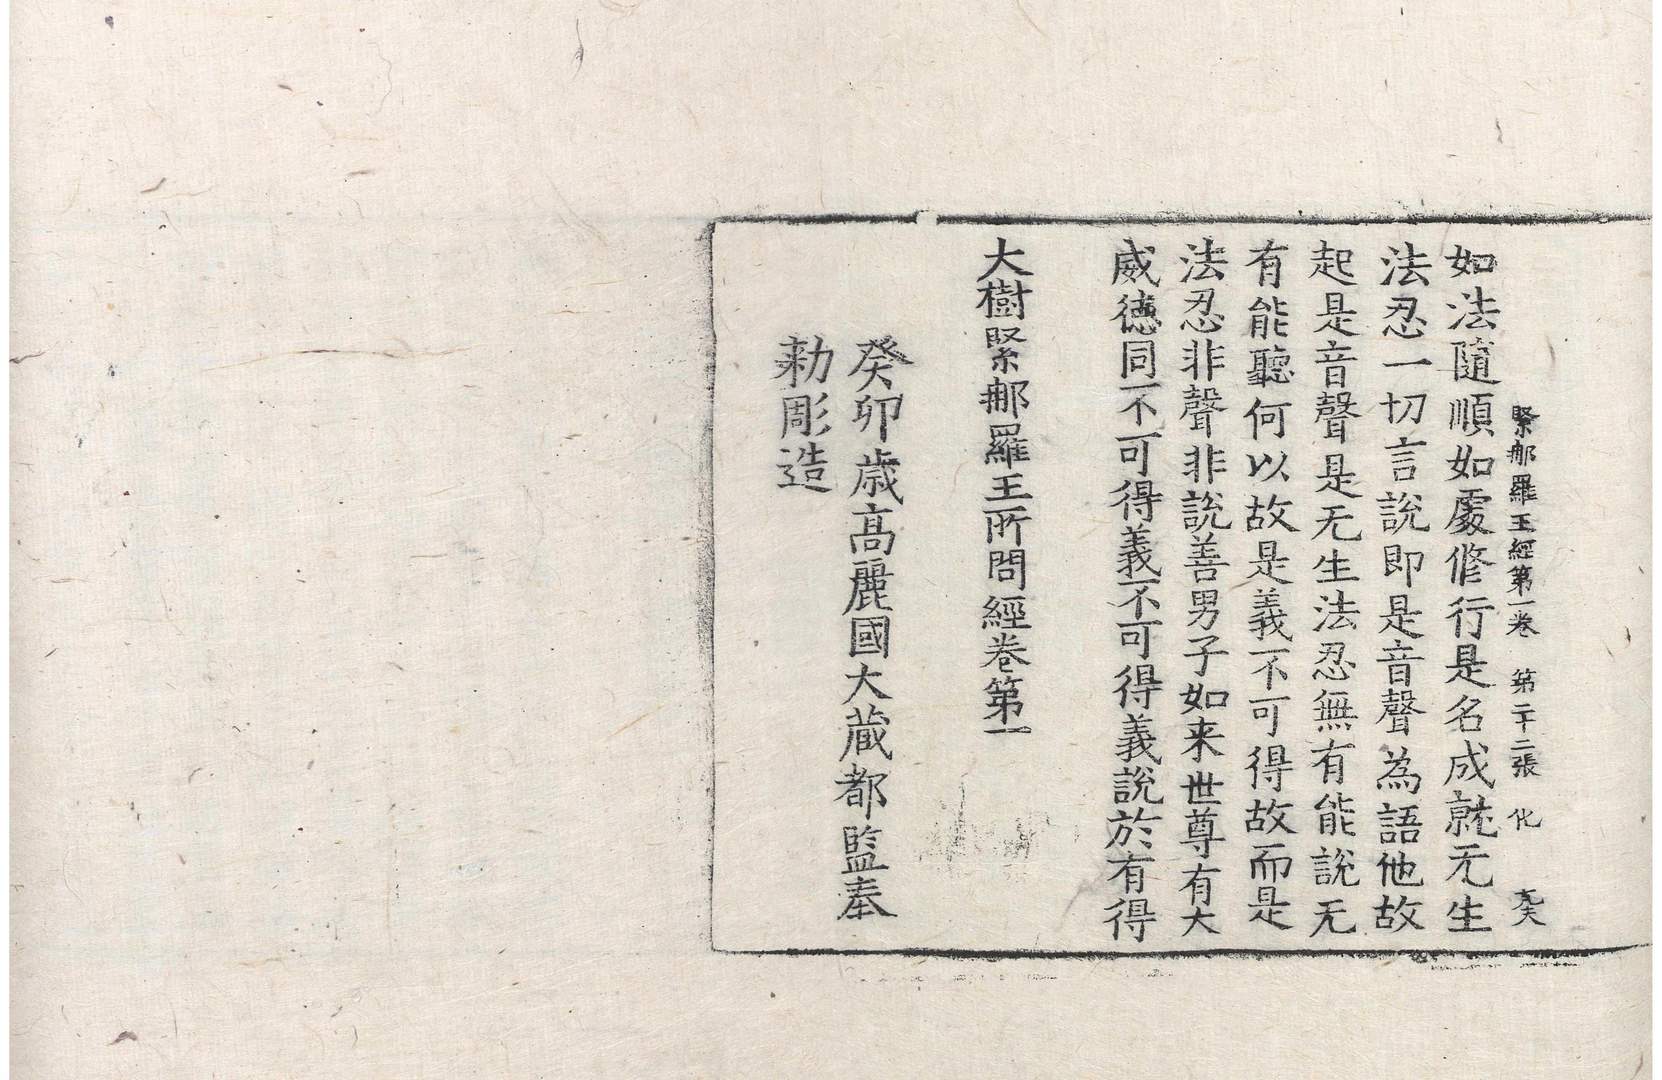 緊那羅王經第一卷 第二十二張 化
如法隨順如處修行是名成就无生
法忍一切言說即是音聲為語他故
起是音聲是无生法忍無有能說无
有能聽何以故是義不可得故而是
法忍非聲非說善男子如来世尊有大
威德同不可得義不可得義說於有得
大樹緊那羅王所問經卷第一
癸卯歲高麗國大藏都監奉
勑彫造